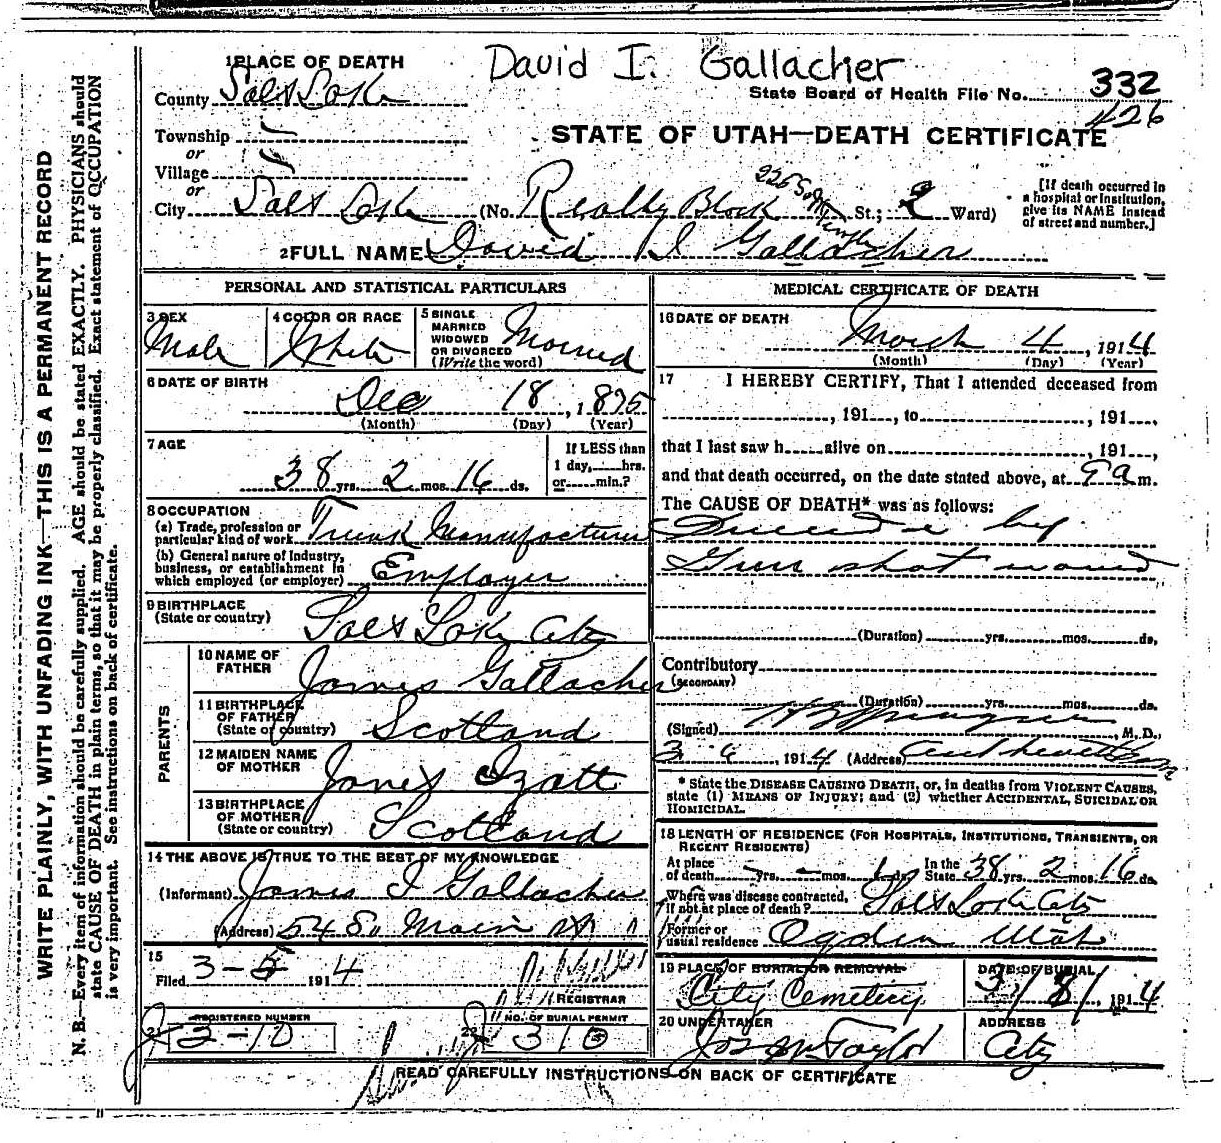 David I. Gallacher
1 PLACE OF DEATH
County Salt Lake
State Board of Health File No. 332
426
Township
or
Village
or
STATE OF UTAH—DEATH CERTIFICATE
City Salt Lake (No. Realty Block St.; 2 Ward)
[If death occurred in a hospital or institution, give its NAME instead of street and number.]
2 FULL NAME David I Gallacher
PERSONAL AND STATISTICAL PARTICULARS
3 SEX
Male
4 COLOR OR RACE
White
5 SINGLE MARRIED WIDOWED OR DIVORCED (Write the word)
Married
6 DATE OF BIRTH
Dec 18, 1875
(Month) (Day) (Year)
7 AGE
38 yrs. 2 mos. 16 ds.
If LESS than 1 day, hrs. or min.?
8 OCCUPATION
(a) Trade, profession or particular kind of work Trunk Manufacturer
(b) General nature of industry, business, or establishment in which employed (or employer) Employer
9 BIRTHPLACE (State or country) Salt Lake City
PARENTS
10 NAME OF FATHER James Gallacher
11 BIRTHPLACE OF FATHER (State or country) Scotland
12 MAIDEN NAME OF MOTHER Janet Izatt
13 BIRTHPLACE OF MOTHER (State or country) Scotland
14 THE ABOVE IS TRUE TO THE BEST OF MY KNOWLEDGE
(Informant) James I Gallacher
(Address) 548 So Main St
15
Filed 3-5 1914
REGISTRAR
21 REGISTERED NUMBER
3-10
22 NO. OF BURIAL PERMIT
310
MEDICAL CERTIFICATE OF DEATH
16 DATE OF DEATH
March 4, 1914
(Month) (Day) (Year)
17 I HEREBY CERTIFY, That I attended deceased from
, 191 , to , 191 ,
that I last saw h alive on , 191 ,
and that death occurred, on the date stated above, at 9 a m.
The CAUSE OF DEATH* was as follows:
Suicide by
Gun shot wound
(Duration) yrs. mos. ds.
Contributory
(SECONDARY)
(Duration) yrs. mos. ds.
(Signed) , M. D.,
3 4, 1914 (Address)
* State the DISEASE CAUSING DEATH, or, in deaths from VIOLENT CAUSES, state (1) MEANS OF INJURY; and (2) whether ACCIDENTAL, SUICIDAL OR HOMICIDAL.
18 LENGTH OF RESIDENCE (FOR HOSPITALS, INSTITUTIONS, TRANSIENTS, OR RECENT RESIDENTS)
At place of death yrs. mos. 1 ds. In the State 38 yrs. 2 mos. 16 ds.
Where was disease contracted, if not at place of death? Salt Lake City
Former or usual residence Ogden Utah
19 PLACE OF BURIAL OR REMOVAL
City Cemetery
DATE OF BURIAL
3/8/, 1914
20 UNDERTAKER
Jos Wm Taylor
ADDRESS
City
READ CAREFULLY INSTRUCTIONS ON BACK OF CERTIFICATE
WRITE PLAINLY, WITH UNFADING INK—THIS IS A PERMANENT RECORD
N. B.—Every item of information should be carefully supplied. AGE should be stated EXACTLY. PHYSICIANS should
state CAUSE OF DEATH in plain terms, so that it may be properly classified. Exact statement of OCCUPATION
is very important. See instructions on back of certificate.